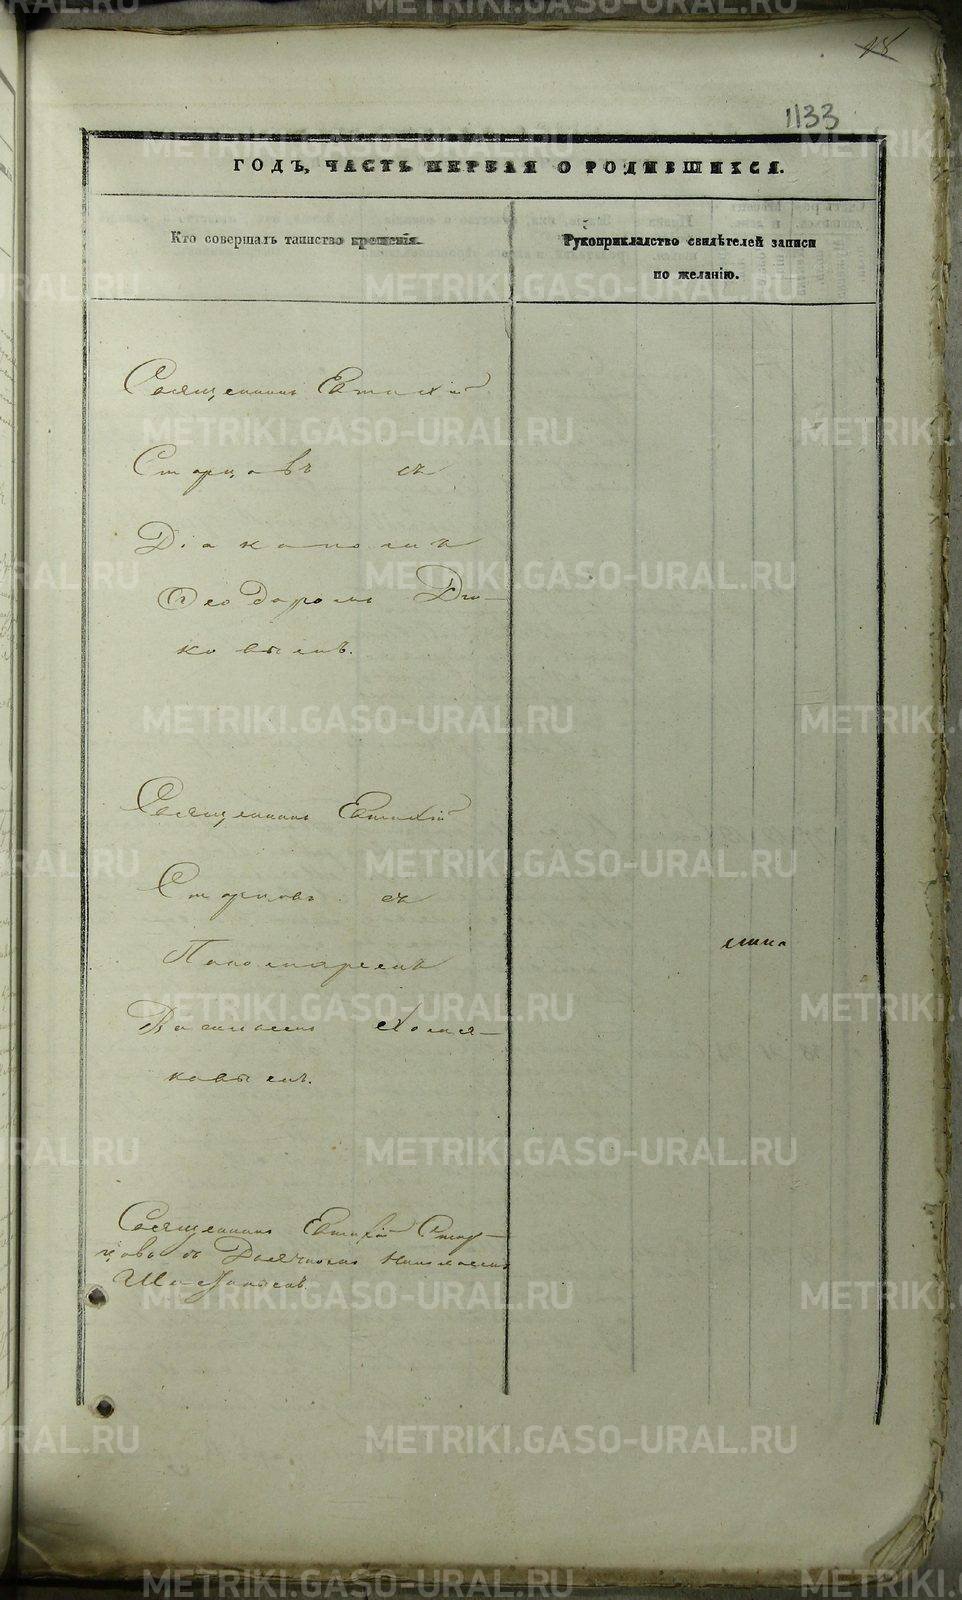 18
1133
ГОДЪ, ЧАСТЬ ПЕРВАЯ О РОДИВШИХСЯ.
Кто совершалъ таинство крещенія.
Рукоприкладство свидѣтелей записи
по желанію.
Священникъ Евтихій
Старцовъ съ
Діакономъ
Ѳеодоромъ Дья-
ковымъ.
Священникъ Евтихій
Старцовъ съ
Пономаремъ
Василіемъ Хомя-
ковымъ.
Священникъ Евтихій Стар-
цовъ съ Дьячкомъ Николаемъ
METRIKI.GASO-URAL.RU